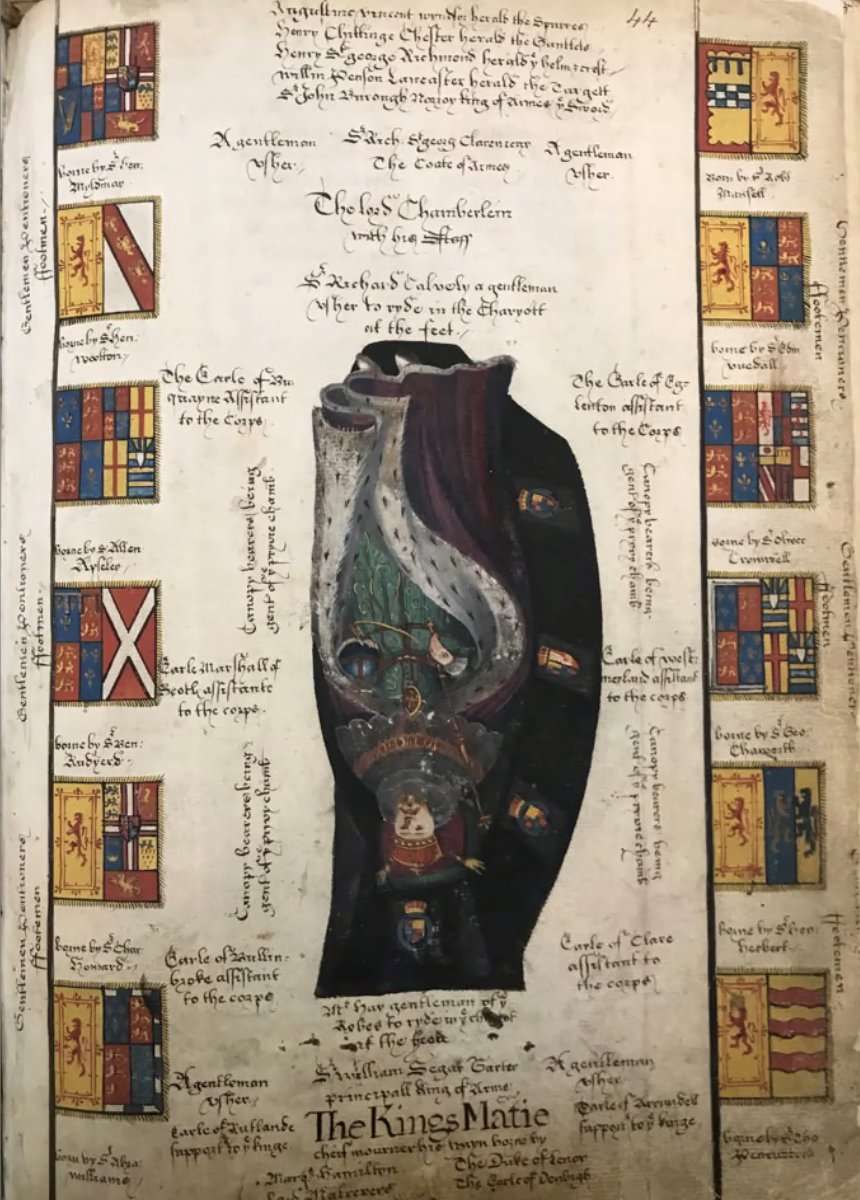 44
Augustine vincent wyndsor herald the Spurres
Henry Chittinge Chester herald the Gantlets
Henry St george Richmond herald ye helm & crest
willm Penson Lancaster herald the Targett
Sr John Burrough Norroy king of Armes ye Sword
A gentleman
vsher
Sr Rich: St georg Clarenceux
The Coate of Armes
A gentleman
vsher.
The lord Chamberlein
with his Staff
Sr Richard Calvely a gentleman
vsher to ryde in the Charyott
at the feet.
borne by Sr Hen:
Myldmay
borne by Sr Hen:
wootton
borne by Sr Allen
Apsley
borne by Sr Ben:
Rudyerd
borne by Sr Char
Howard
borne by Sr Abra:
williams
Gentlemen Pentioners
ffootmen
Gentlemen Pentioners
ffootmen
Gentlemen Pentioners
ffootemen
The Earle of Bu
quhane Assistant
to the Corps
Canopy bearers being
gent of ye pryvie chamb
Earle Marshall of
Scoth assistante
to the corps
Canopy bearers being
gent of ye pryvy chamb
Earle of Bullin
broke assistant
to the corps
The Earle of Eg
lenton assistant
to the Corps
Canopy bearers being
gent of ye pryvy chamb
Earle of west
merland assistant
to the corps
Canopy bearers being
gent of ye privie chamb
Earle of Clare
assistant to
the corps
borne by Sr Robt
Mansell
borne by Sr Edm
vuedall
borne by Sr Oliver
Cromwell
borne by Sr Geo:
Chaworth
borne by Sr hen:
herbert
borne by Sr Tho
Gentlemen Pentioners
ffootemen
Gentlemen Pentioners
ffootmen
ffootemen
Mr hay gentleman of ye
Robes to ryde in ye chariot
at the head
A gentleman
vsher
Sr william Segar Garter
principall king of Armes
A gentleman
vsher
Earle of Rutlande
support to ye kinge
The Kings Matie
cheif mourner his trayn borne by
Earle of Arundell
support to ye kinge
Marqs Hamilton
The Duke of Lenox
The Earle of Denbigh
Lord Matrevers